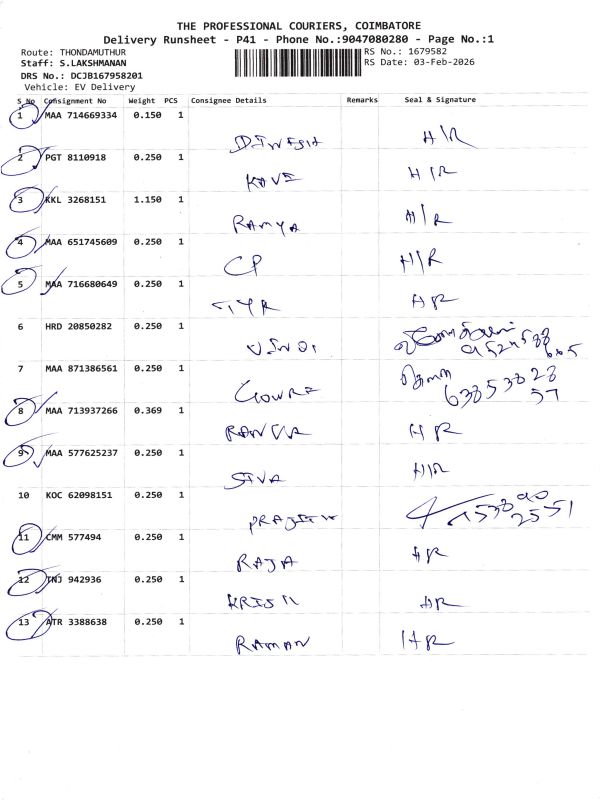 THE PROFESSIONAL COURIERS, COIMBATORE
Delivery Runsheet - P41 - Phone No.:9047080280 - Page No.:1
Route: THONDAMUTHUR
RS No.: 1679582
Staff: S.LAKSHMANAN
RS Date: 03-Feb-2026
DRS No.: DCJB167958201
Vehicle: EV Delivery
S No Consignment No Weight PCS Consignee Details Remarks Seal & Signature
1 MAA 714669334 0.150 1
H/R
2 PGT 8110918 0.250 1
KAVI H/R
3 KKL 3268151 1.150 1
RAMYA H/R
4 MAA 651745609 0.250 1
CP H/R
5 MAA 716680649 0.250 1
HR
6 HRD 20850282 0.250 1
7 MAA 871386561 0.250 1
63853828
57
8 MAA 713937266 0.369 1
HR
9 MAA 577625237 0.250 1
SIVA H/R
10 KOC 62098151 0.250 1
2551
11 CMM 577494 0.250 1
RAJA HR
12 TNJ 942936 0.250 1
HR
13 ATR 3388638 0.250 1
RAMAN HR